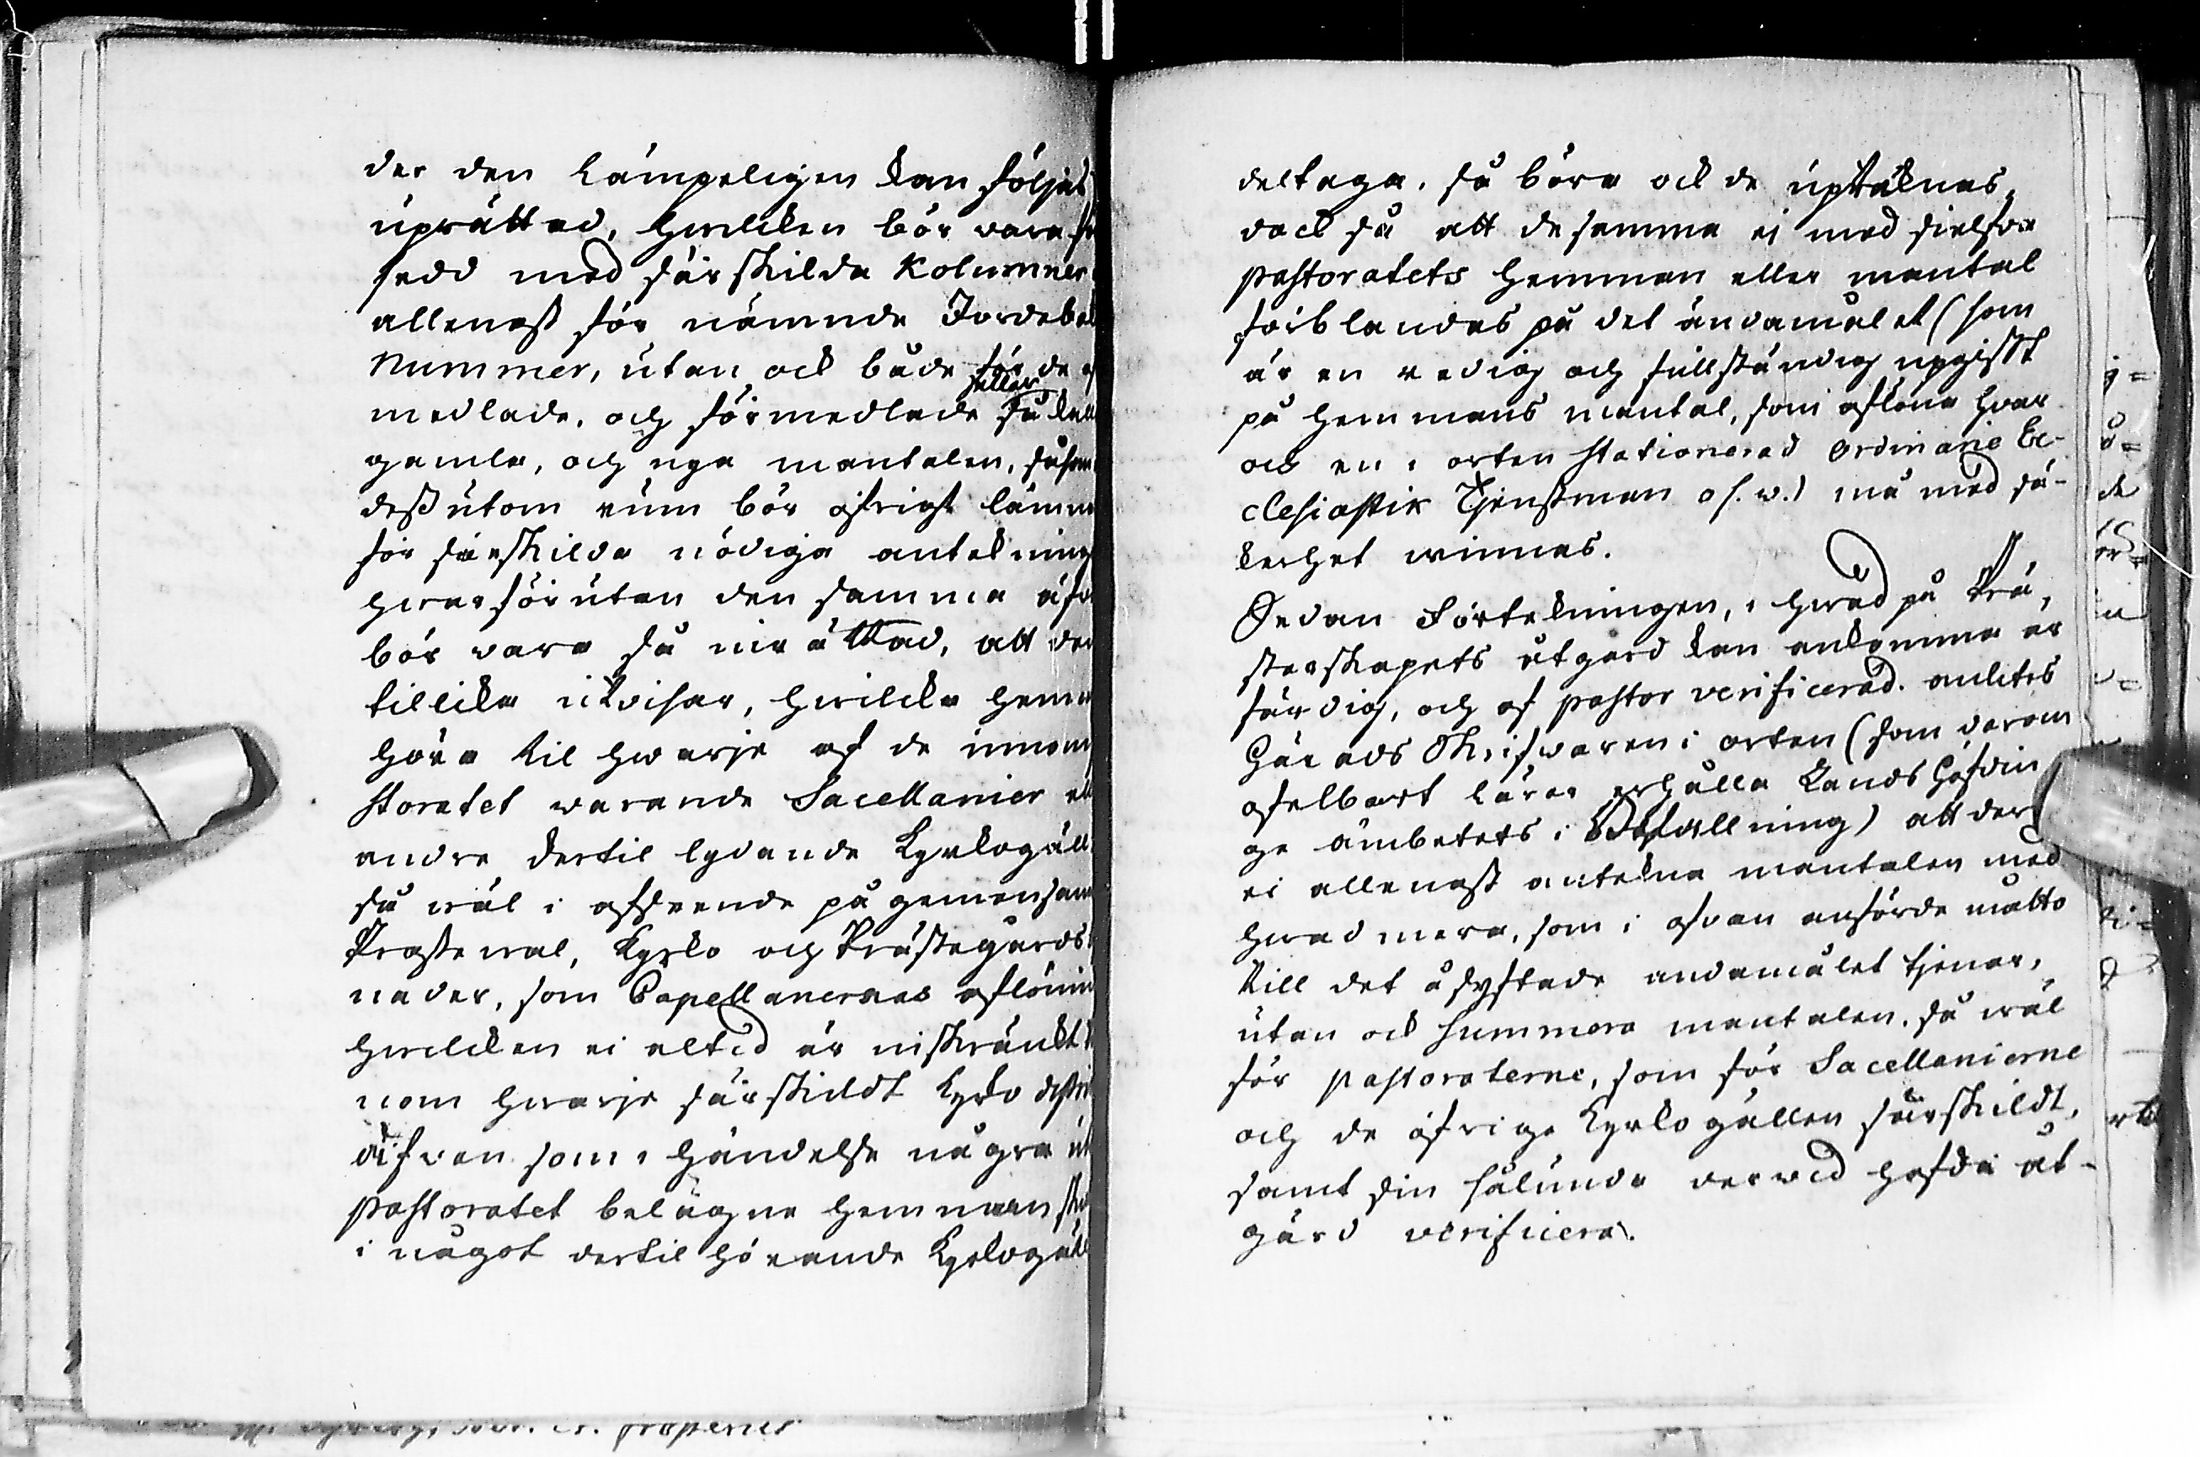 der den Lämpeligen kan följas
uprättad, hwilcken bör vara
sedd med särskilda Kolumner
allenast för nämnde Jordebok
Nummer, utan ock både för de
medlade, och förmedlade eller så kall
gamla, och nya mantalen, såsom
dess utom rum bör öfrigt lämn
för särskilda nödiga anteckning
hwarförutan den samma äfv
bör vara så inrättad, att der
tillika utvisar, hwilcka hem
höra til hwarje af de innom
storatet warande Sacellanier
andra dertil lydande Kyrkogäll
så wäl i afseende på gemensam
Prostewal, Kyrko och Prästegårds
nader, som Capellanernas aflönin
hwilcken ei altid är inskränckt
nom hwarje särskildt Kyrko
äfven som i händelse några
Pastoratet belägne hemman
i något dertil hörande Kyrkogäll
deltaga, så böra ock de uptecknas,
dock så att desamma ej med sielfva
Pastoratets hemman eller mantal
förblandas på det ändamålet (som
är en redig och fullständig upgifft
på hemmans mantal, som aflöna hvar
och en i orten stationerad ordinarie Ec-
clesiastik Tjenstman o s. v.) må med sä-
kerhet winnas.
Sedan Förteckningen, i hwad på Prä,
sterskapets åtgärd kan ankomma är
färdig, och af Pastor verificerad. anlitas
Härads Skrifwaren i orten (som derom
ofelbart lärer erhålla Landshöfdin
ge ämbetets i befallning) att der
ei allenast anteckna mantalen med
hwad mera, som i ofvan anförde måtto
till det åsyftade andamålet tjenar,
utan ock summera mantalen. så wäl
för Pastoraterne, som för Sacellanierne
och de öfrige Kyrkogällen särskildt,
samt sin sålunda derved hafda åt-
gärd verificera.